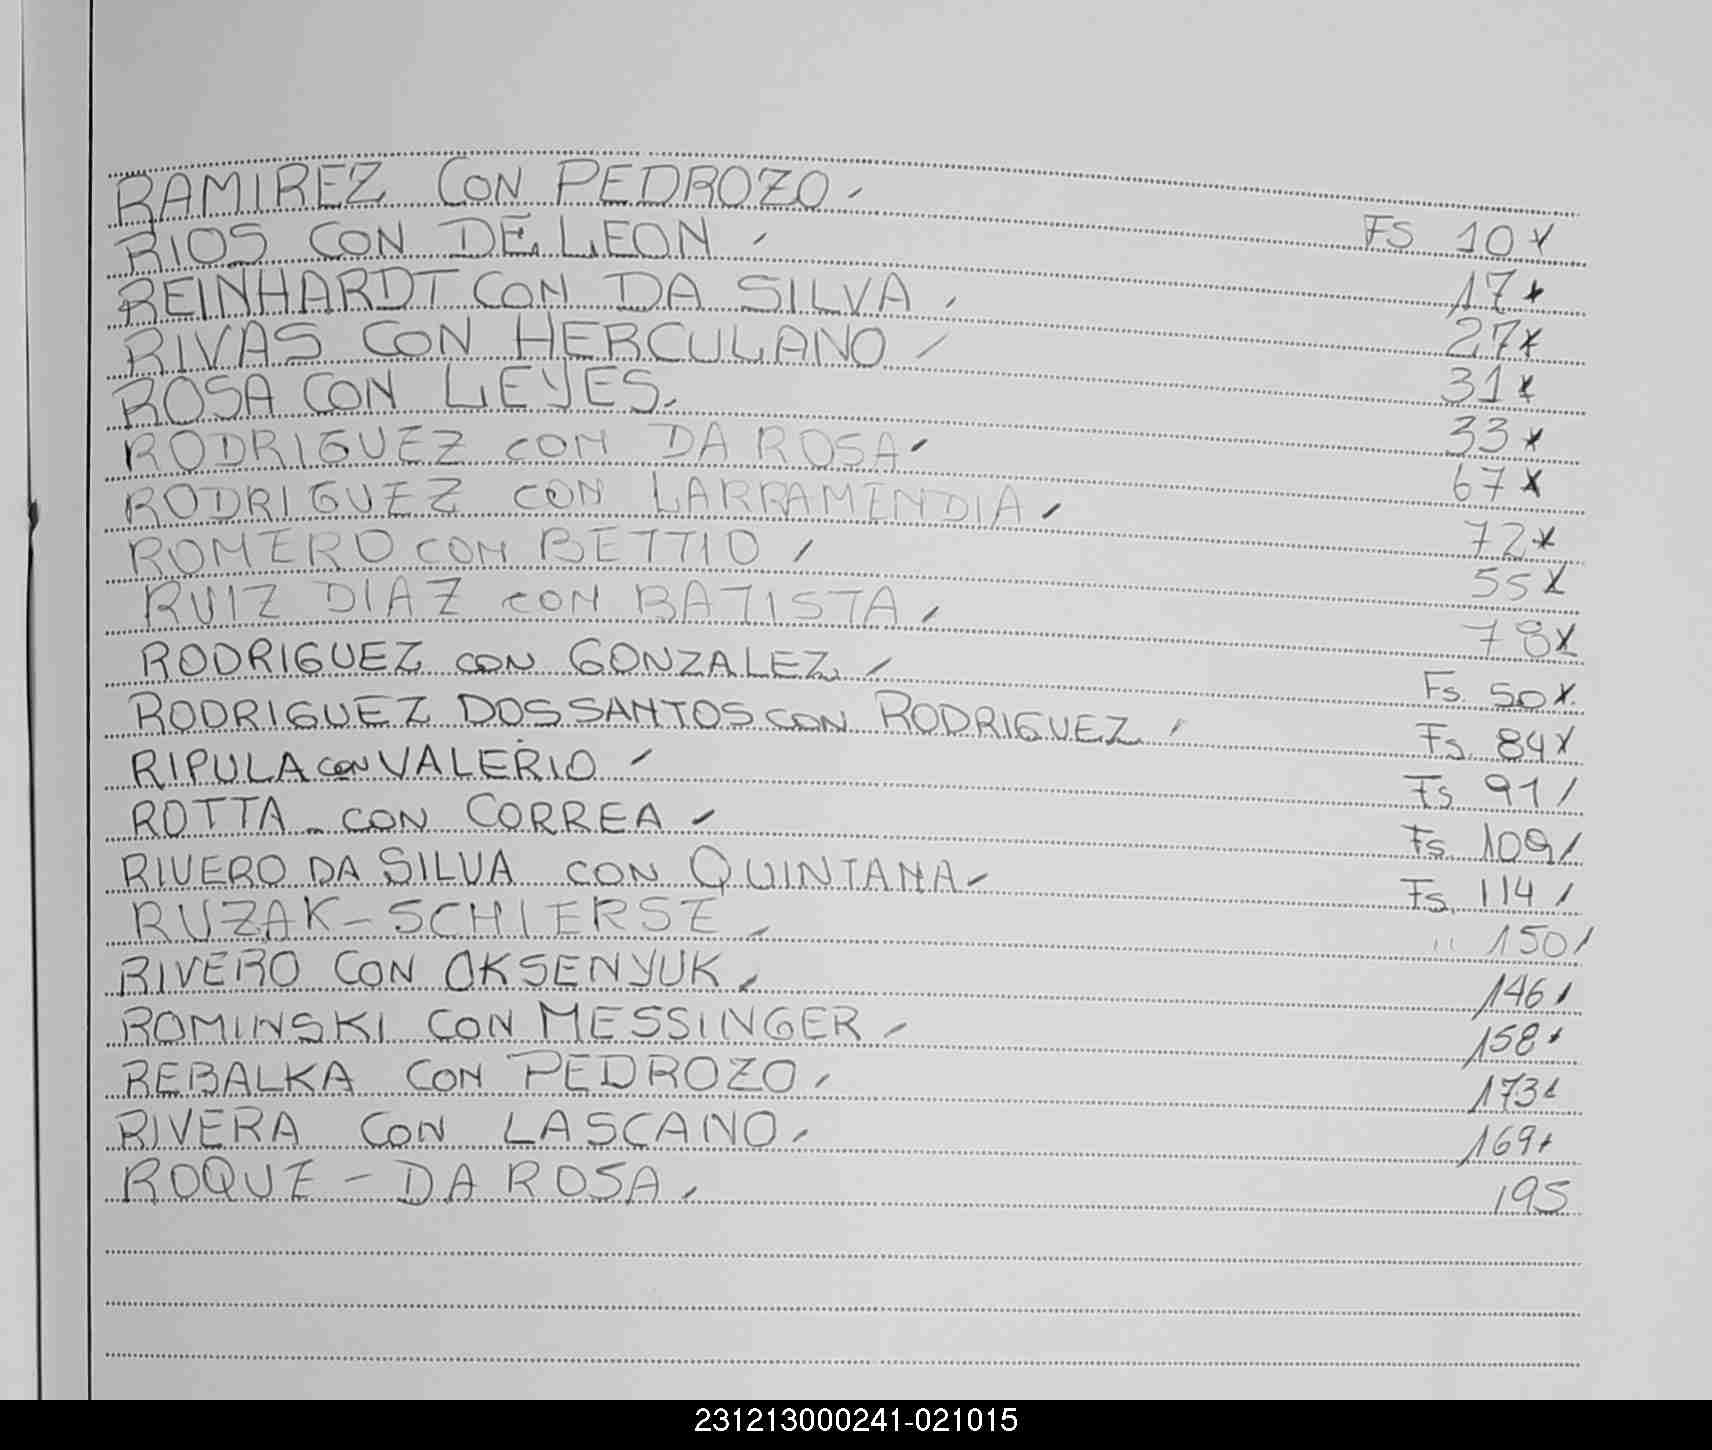 RAMIREZ CON PEDROZO. FS 10
RIOS CON DE LEON 17
REINHARDT CON DA SILVA 27
RIVAS CON HERCULANO 31
ROSA CON LEYES. 33
RODRIGUEZ CON DA ROSA 67
RODRIGUEZ CON LARRAMENDIA 72
ROMERO CON BETTIO 55
RUIZ DIAZ CON BATISTA 78
RODRIGUEZ CON GONZALEZ Fs. 50
RODRIGUEZ DOS SANTOS CON RODRIGUEZ Fs. 84
RIPULA CON VALERIO Fs 91
ROTTA CON CORREA Fs. 109
RIVERO DA SILVA CON QUINTANA Fs. 114
RUZAK - SCHIERSE " 150
RIVERO CON OKSENYUK 146
ROMINSKI CON MESSINGER 158
REBALKA CON PEDROZO 173
RIVERA CON LASCANO 169
ROQUE - DA ROSA 195
231213000241-021015